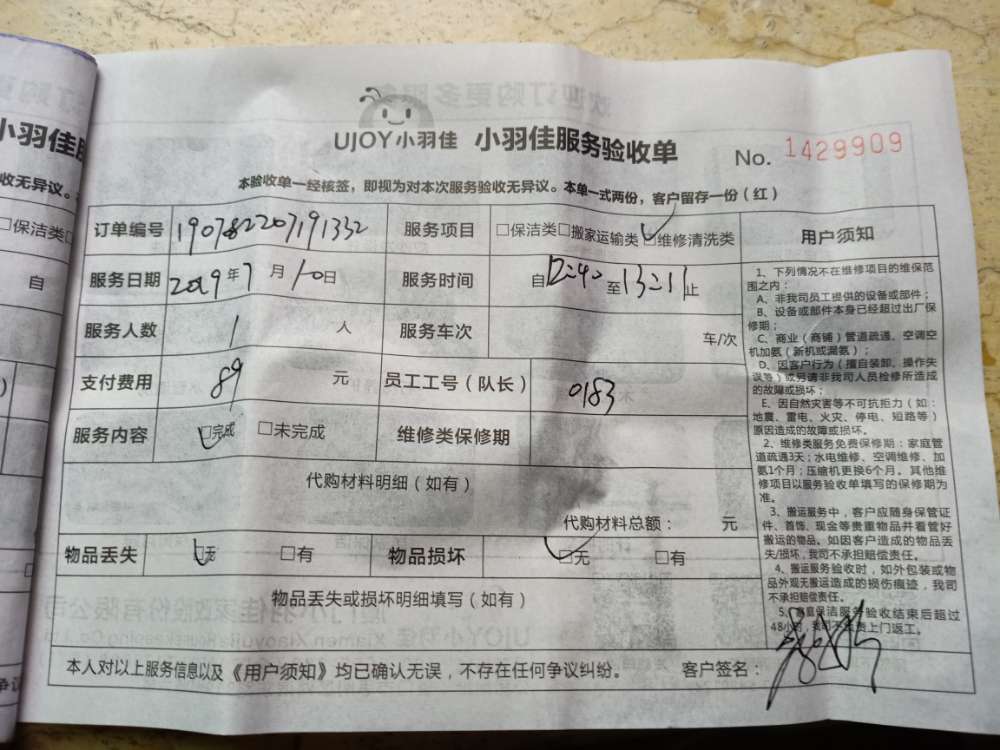 UJOY小羽佳 小羽佳服务验收单 No. 1429909
本验收单一经核签，即视为对本次服务验收无异议。本单一式两份，客户留存一份（红）
订单编号 190782207191332 服务项目 □保洁类□搬家运输类□维修清洗类 用户须知
服务日期 2019年7月10日 服务时间 自12:40至13:11止
服务人数 1 人 服务车次 车/次
支付费用 89 元 员工工号（队长） 0183
服务内容 □完成 □未完成 维修类保修期
代购材料明细（如有）
代购材料总额： 元
物品丢失 □无 □有 物品损坏 □无 □有
物品丢失或损坏明细填写（如有）
1、下列情况不在维修项目的维保范
围之内：
A、非我司员工提供的设备或部件；
B、设备或部件本身已经超过出厂保
修期；
C、商业（商铺）管道疏通、空调空
机加氨（新机或漏氨）；
D、因客户行为（擅自装卸、操作失
误等）或另请非我司人员检修所造成
的故障或损坏；
E、因自然灾害等不可抗拒力（如：
地震、雷电、火灾、停电、短路等）
原因造成的故障或损坏。
2、维修类服务免费保修期：家庭管
道疏通3天；水电维修、空调维修、加
氨1个月；压缩机更换6个月。其他维
修项目以服务验收单填写的保修期为
准。
3、搬运服务中，客户应随身保管证
件、首饰、现金等贵重物品并看管好
搬运的物品。如因客户造成的物品丢
失/损坏，我司不承担赔偿责任。
4、搬运服务验收时，如外包装或物
品外观无搬运造成的损伤痕迹，我司
不承担赔偿责任。
保洁服务验收结束后超过
48小时，我司不负责上门返工。
本人对以上服务信息以及《用户须知》均已确认无误，不存在任何争议纠纷。 客户签名：